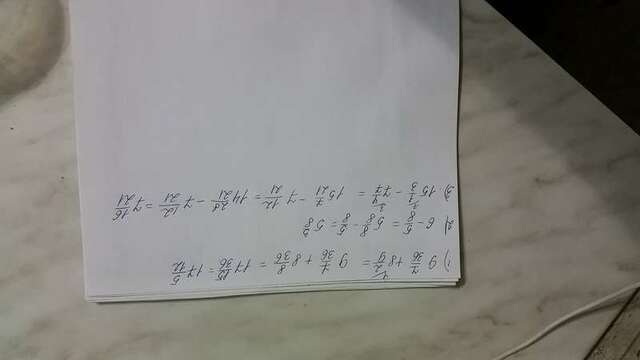 1) 9 7/36 + 8 2/9 = 9 7/36 + 8 8/36 = 17 15/36 = 17 5/12
2) 6 - 5/8 = 5 8/8 - 5/8 = 5 3/8
3) 15 1/3 - 7 4/7 = 15 7/21 - 7 12/21 = 14 28/21 - 7 12/21 = 7 16/21